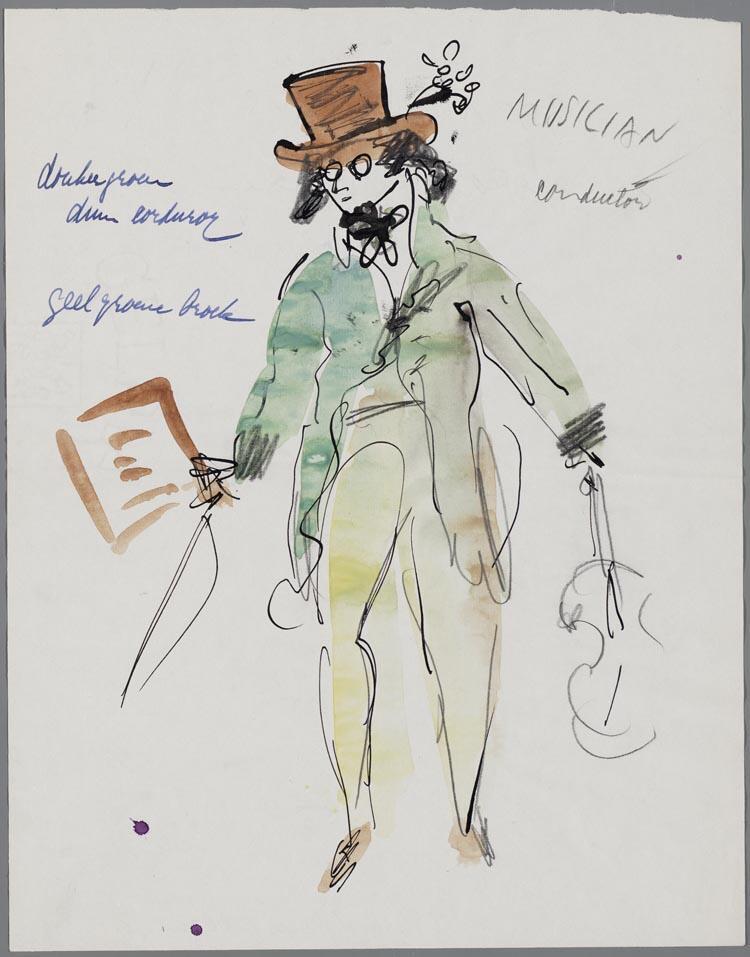 MUSICIAN
conductor
donkergroen
dun corduroy
geelgroene broek